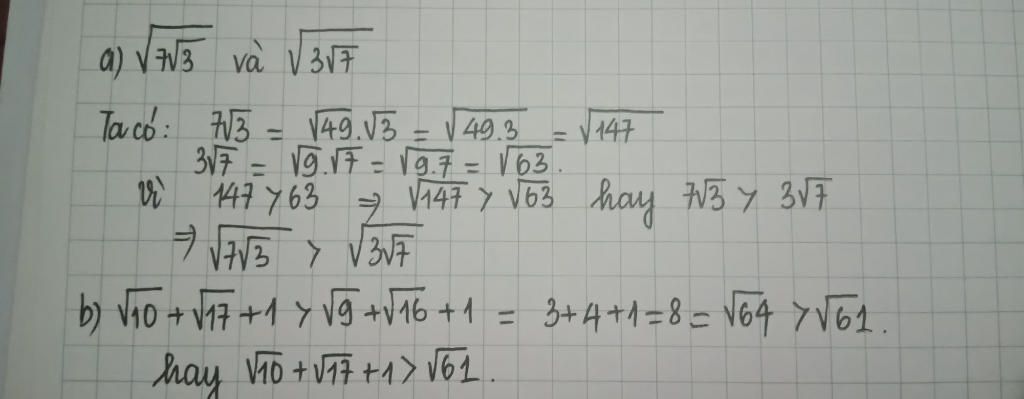 a) √(7√3) và √(3√7)
Ta có: 7√3 = √49.√3 = √(49.3) = √147
3√7 = √9.√7 = √(9.7) = √63.
Vì 147 > 63 ⇒ √147 > √63 hay 7√3 > 3√7
⇒ √(7√3) > √(3√7)
b) √10 + √17 + 1 > √9 + √16 + 1 = 3+4+1=8 = √64 > √61.
hay √10 + √17 + 1 > √61.